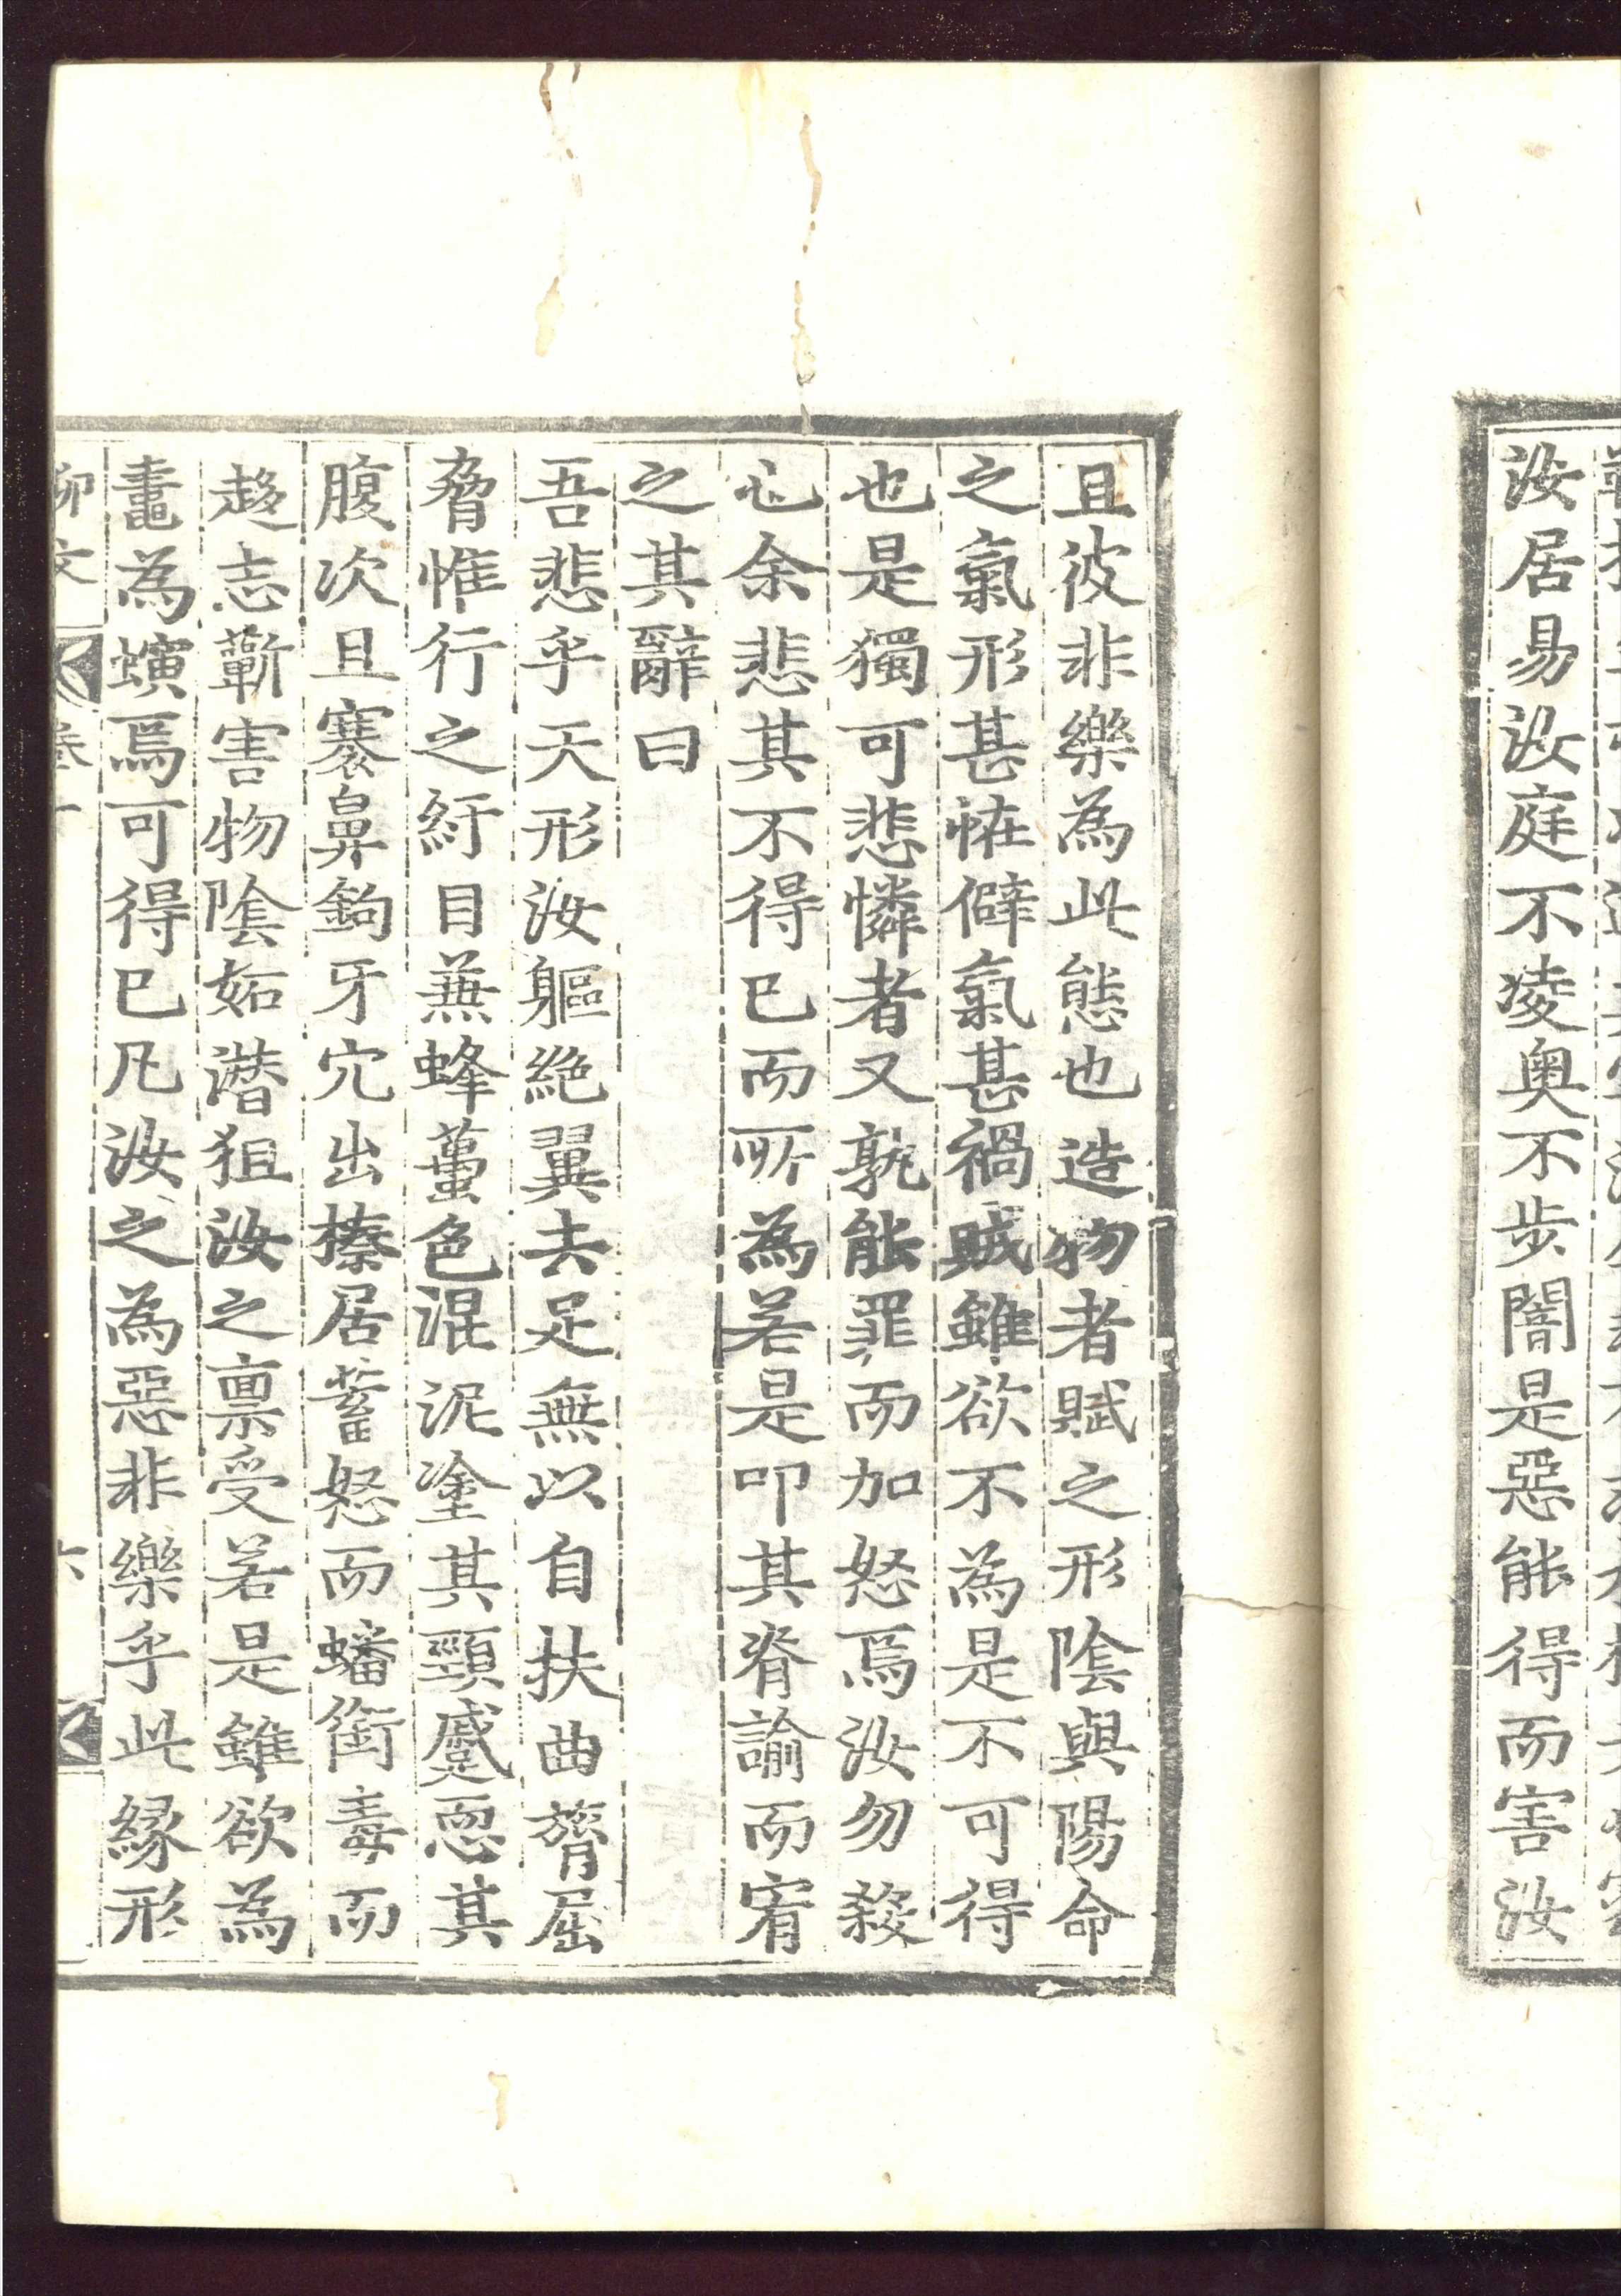 汝居易汝庭不凌奥不步闇是惡能得而害汝
且彼非樂為此態也造物者賦之形陰與陽命
之氣形甚恠僻氣甚禍賊雖欲不為是不可得
也是獨可悲憐者又孰能罪而加怒焉汝勿殺
心余悲其不得已而所為若是叩其脊諭而宥
之其辭曰
吾悲乎天形汝軀絶翼去足無以自扶曲膂屈
脅惟行之紆目蒹蜂蠆色混泥塗其頸蹙恧其
腹次且褰鼻鉤牙穴出榛居蓄怒而蟠銜毒而
趍志蘄害物陰妬潜狙汝之禀受若是雖欲為
鼃為螾焉可得已凡汝之為惡非樂乎此縁形
柳文 卷十 六